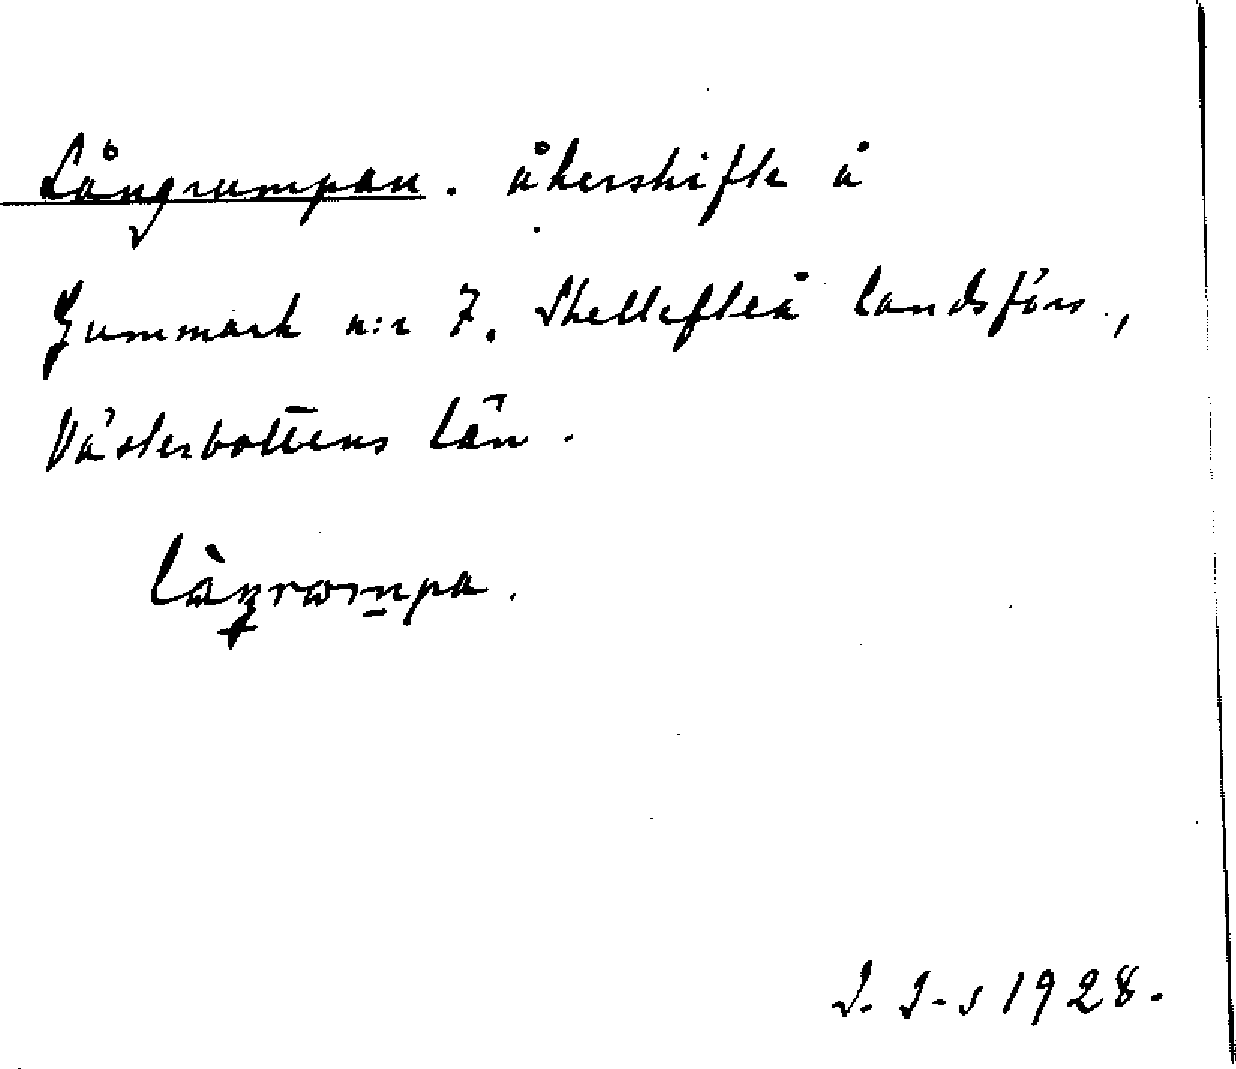 Långrumpan. åkerskifte å
Gummark n:r 7. Skellefteå landsförs.,
Västerbottens län.
1928.